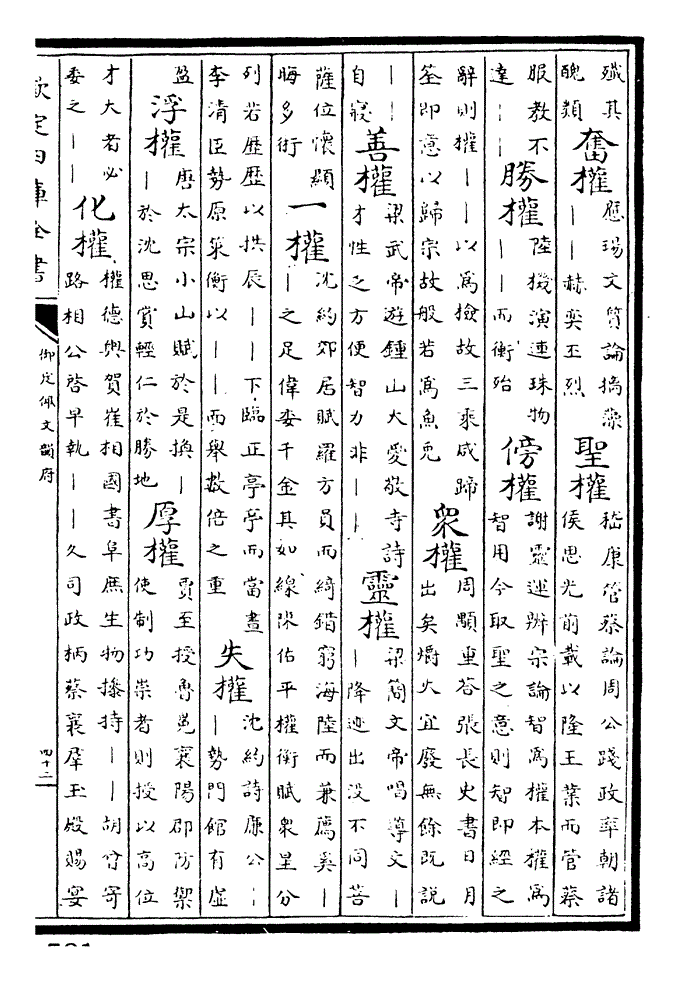 殲其
醜類
奮權
應瑒文質論摛藻
丨丨赫奕丕烈
聖權
嵇康管蔡論周公踐政率朝諸
侯思光前載以隆王業而管蔡
服教不
達丨丨
勝權
陸機演連珠物
丨丨而衡殆
傍權
謝靈運辨宗論智為權本權為
智用今取聖之意則智即經之
辭則權丨丨以為檢故三乘咸蹄
筌即意以歸宗故般若為魚兎
衆權
周顒重答張長史書日月
出矣爝火宜廢無餘既說
丨丨
自寢
善權
梁武帝遊鍾山大愛敬寺詩
才性之方便智力非丨丨
靈權
梁簡文帝唱導文丨
丨降迹出没不同菩
薩位懷顯
晦多術
一權
沈約郊居賦羅方員而綺錯窮海陸而兼薦奚丨
丨之足偉委千金其如線陳佑平權衡賦衆星分
列若歴歴以拱辰丨丨下臨正亭亭而當晝
李清臣勢原策衡以丨丨而舉數倍之重
失權
沈約詩廉公丨
丨勢門館有虚
盈
浮權
唐太宗小山賦於是換丨
丨於沈思賞輕仁於勝地
厚權
賈至授魯炅襄陽郡防禦
使制功崇者則授以高位
才大者必
委之丨丨
化權
權德輿賀崔相國書阜庶生物播持丨丨胡曾寄
路相公啓早執丨丨久司政柄蔡襄羣玉殿賜宴
欽定四庫全書
御定佩文韻府
四十二